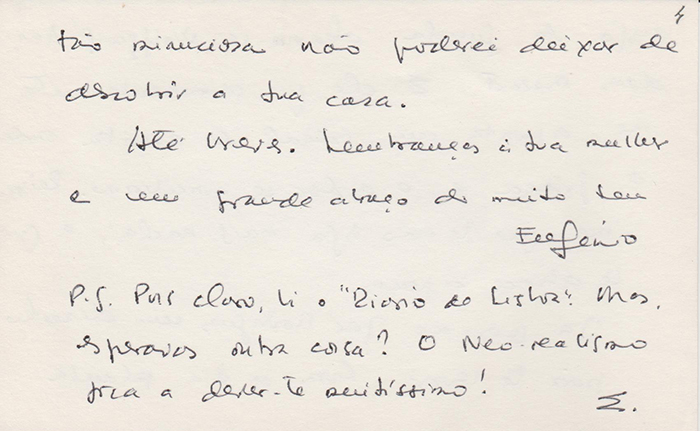 4
tão minuciosa não poderei deixar de
descobrir a tua casa.
Até breve. Lembranças à tua mulher
e um grande abraço do muito teu
Eugénio
P.S. Pois claro, li o "Diário de Lisboa". Mas,
esperavas outra coisa? O Neo-realismo
fica a dever-te muitíssimo!
E.